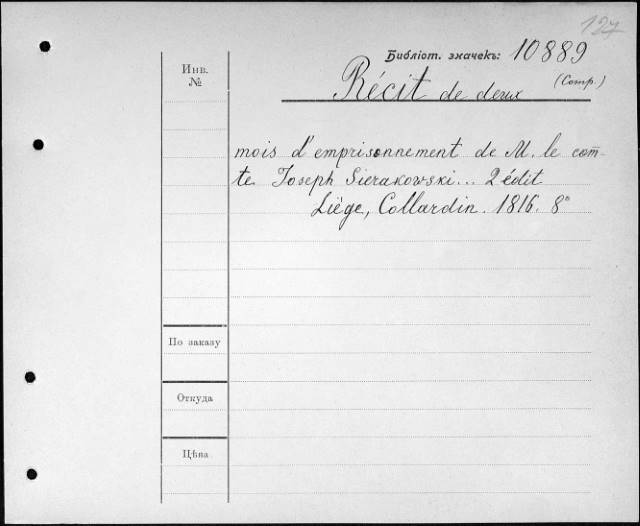 127
Библіот. значекъ: 10889
Инв.
№
Récit de deux (Comp.)
mois d'emprisonnement de M. le com-
te Joseph Sierakowski... 2 édit
Liège, Collardin. 1816. 8°
По заказу
Откуда
Цѣна